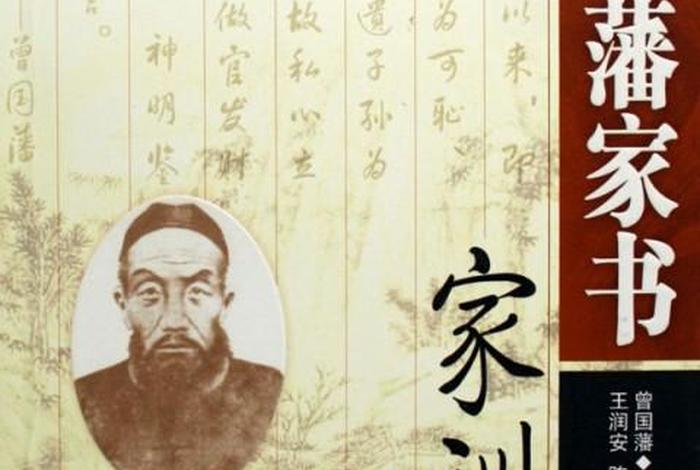 藩家书
曾国藩◆
王润安
家训
以来，即
为可耻、
遗子孙为
故私心立
做官发财
神明鉴
。
—曾国藩